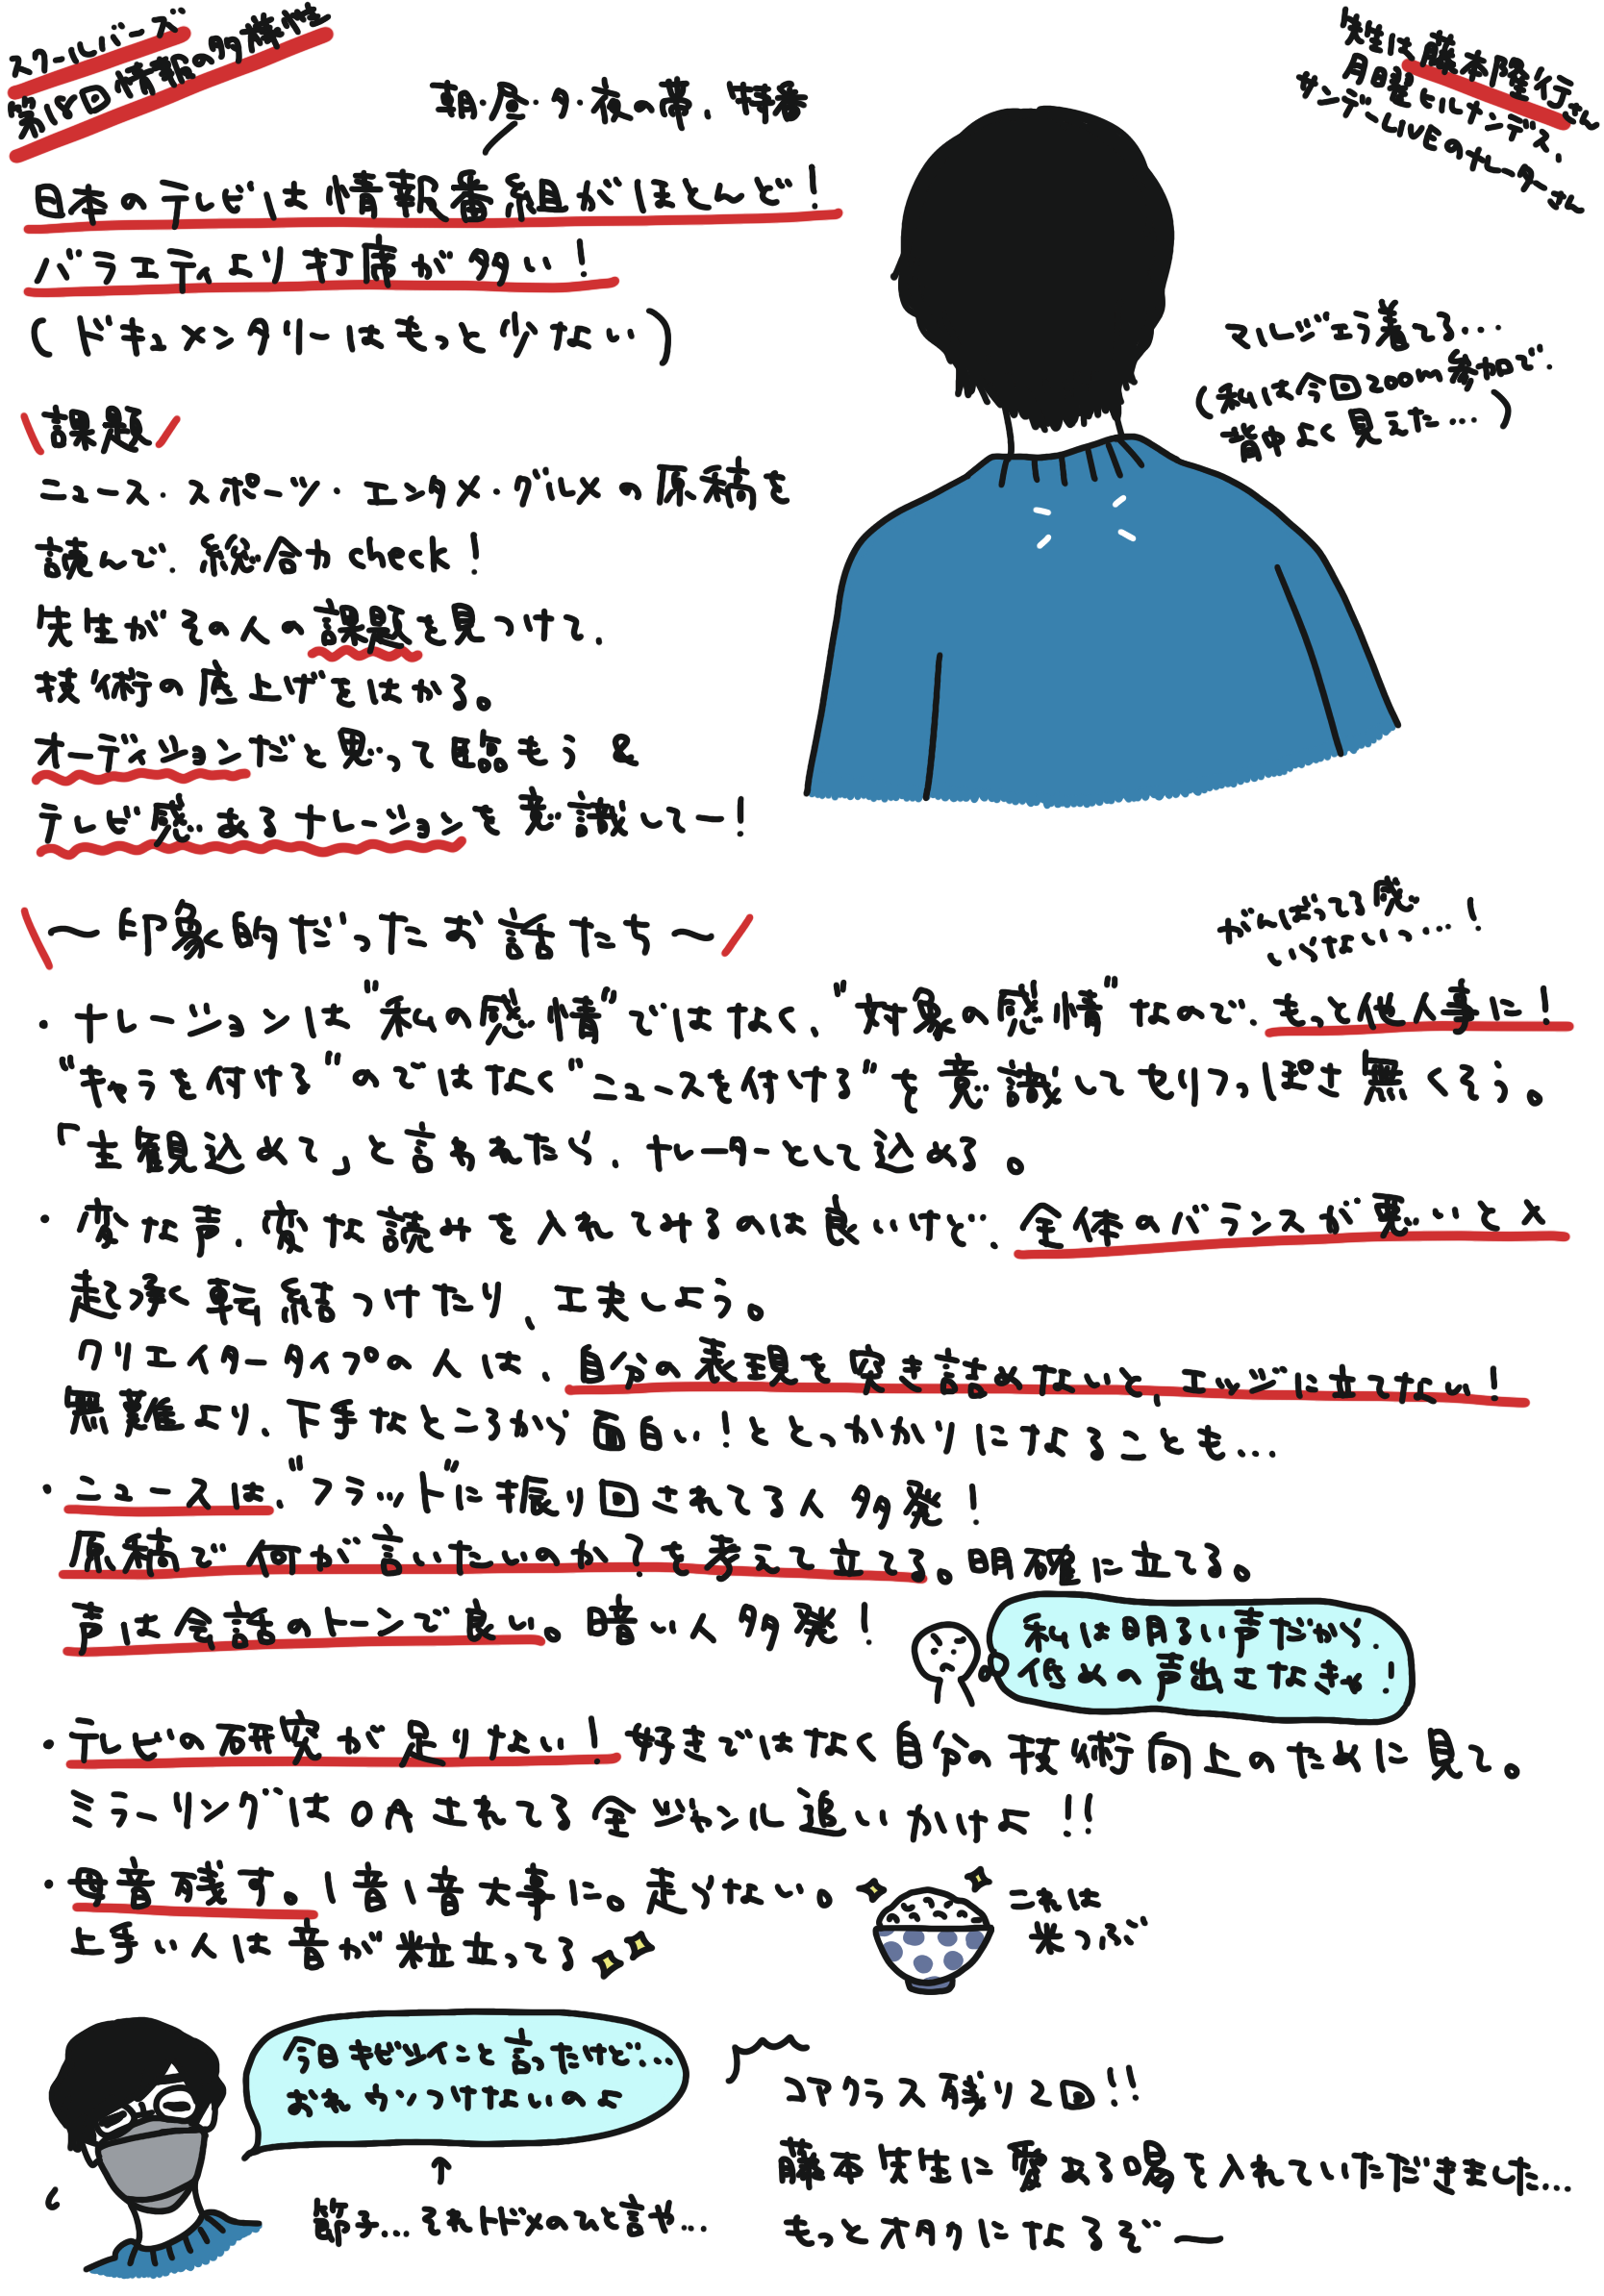 スクールバーズ
第18回 情報の多様性
先生は藤本隆行さん
月曜ヒルナンデス、
サンデーLIVEのナレーターさん
朝・昼・夕・夜の帯、特番
日本のテレビは情報番組がほとんど!
バラエティより打席が多い!
(ドキュメンタリーはもっと少ない)
マルジェラ着てる…
(私は今回zoom参加で、
背中よく見えた…)
\課題/
ニュース・スポーツ・エンタメ・グルメの原稿を
読んで、総合力check!
先生がその人の課題を見つけて、
技術の底上げをはかる。
オーディションだと思って臨もう &
テレビ感あるナレーションを意識してー!
\〜印象的だったお話たち〜/
がんばってる感
いらないっ…!
・ナレーションは"私の感情"ではなく、"対象の感情"なので、もっと他人事に!
"キャラを付ける"のではなく"ニュースを付ける"を意識してセリフっぽさ無くそう。
「主観込めて」と言われたら、ナレーターとして込める。
・変な声、変な読みを入れてみるのは良いけど、全体のバランスが悪いと×
起承転結つけたり、工夫しよう。
クリエイタータイプの人は、自分の表現を突き詰めないと、エッジに立てない!
無難より、下手なところから面白い!ととっかかりになることも…
・ニュースは、"フラット"に振り回されてる人多発!
原稿で何が言いたいのか?を考えて立てる。明確に立てる。
声は会話のトーンで良い。暗い人多発!
私は明るい声だから、
低めの声出さなきゃ!
・テレビの研究が足りない!好きではなく自分の技術向上のために見て。
ミラーリングはOAされてる全ジャンル追いかけよ!!
・母音残す。1音1音大事に。走らない。
上手い人は音が粒立ってる
これは
米つぶ
今日キビシイこと言ったけど…
おれウソつけないのよ
↑
節子…それトドメのひと言や…
コアクラス残り2回!!
藤本先生に愛ある喝を入れていただきました…
もっとオタクになるぞー